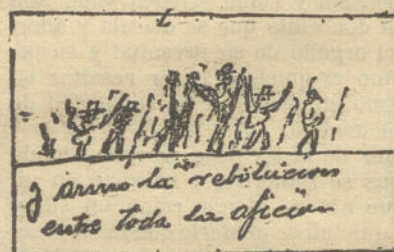 y armo la rebolucion
entre toda la afición